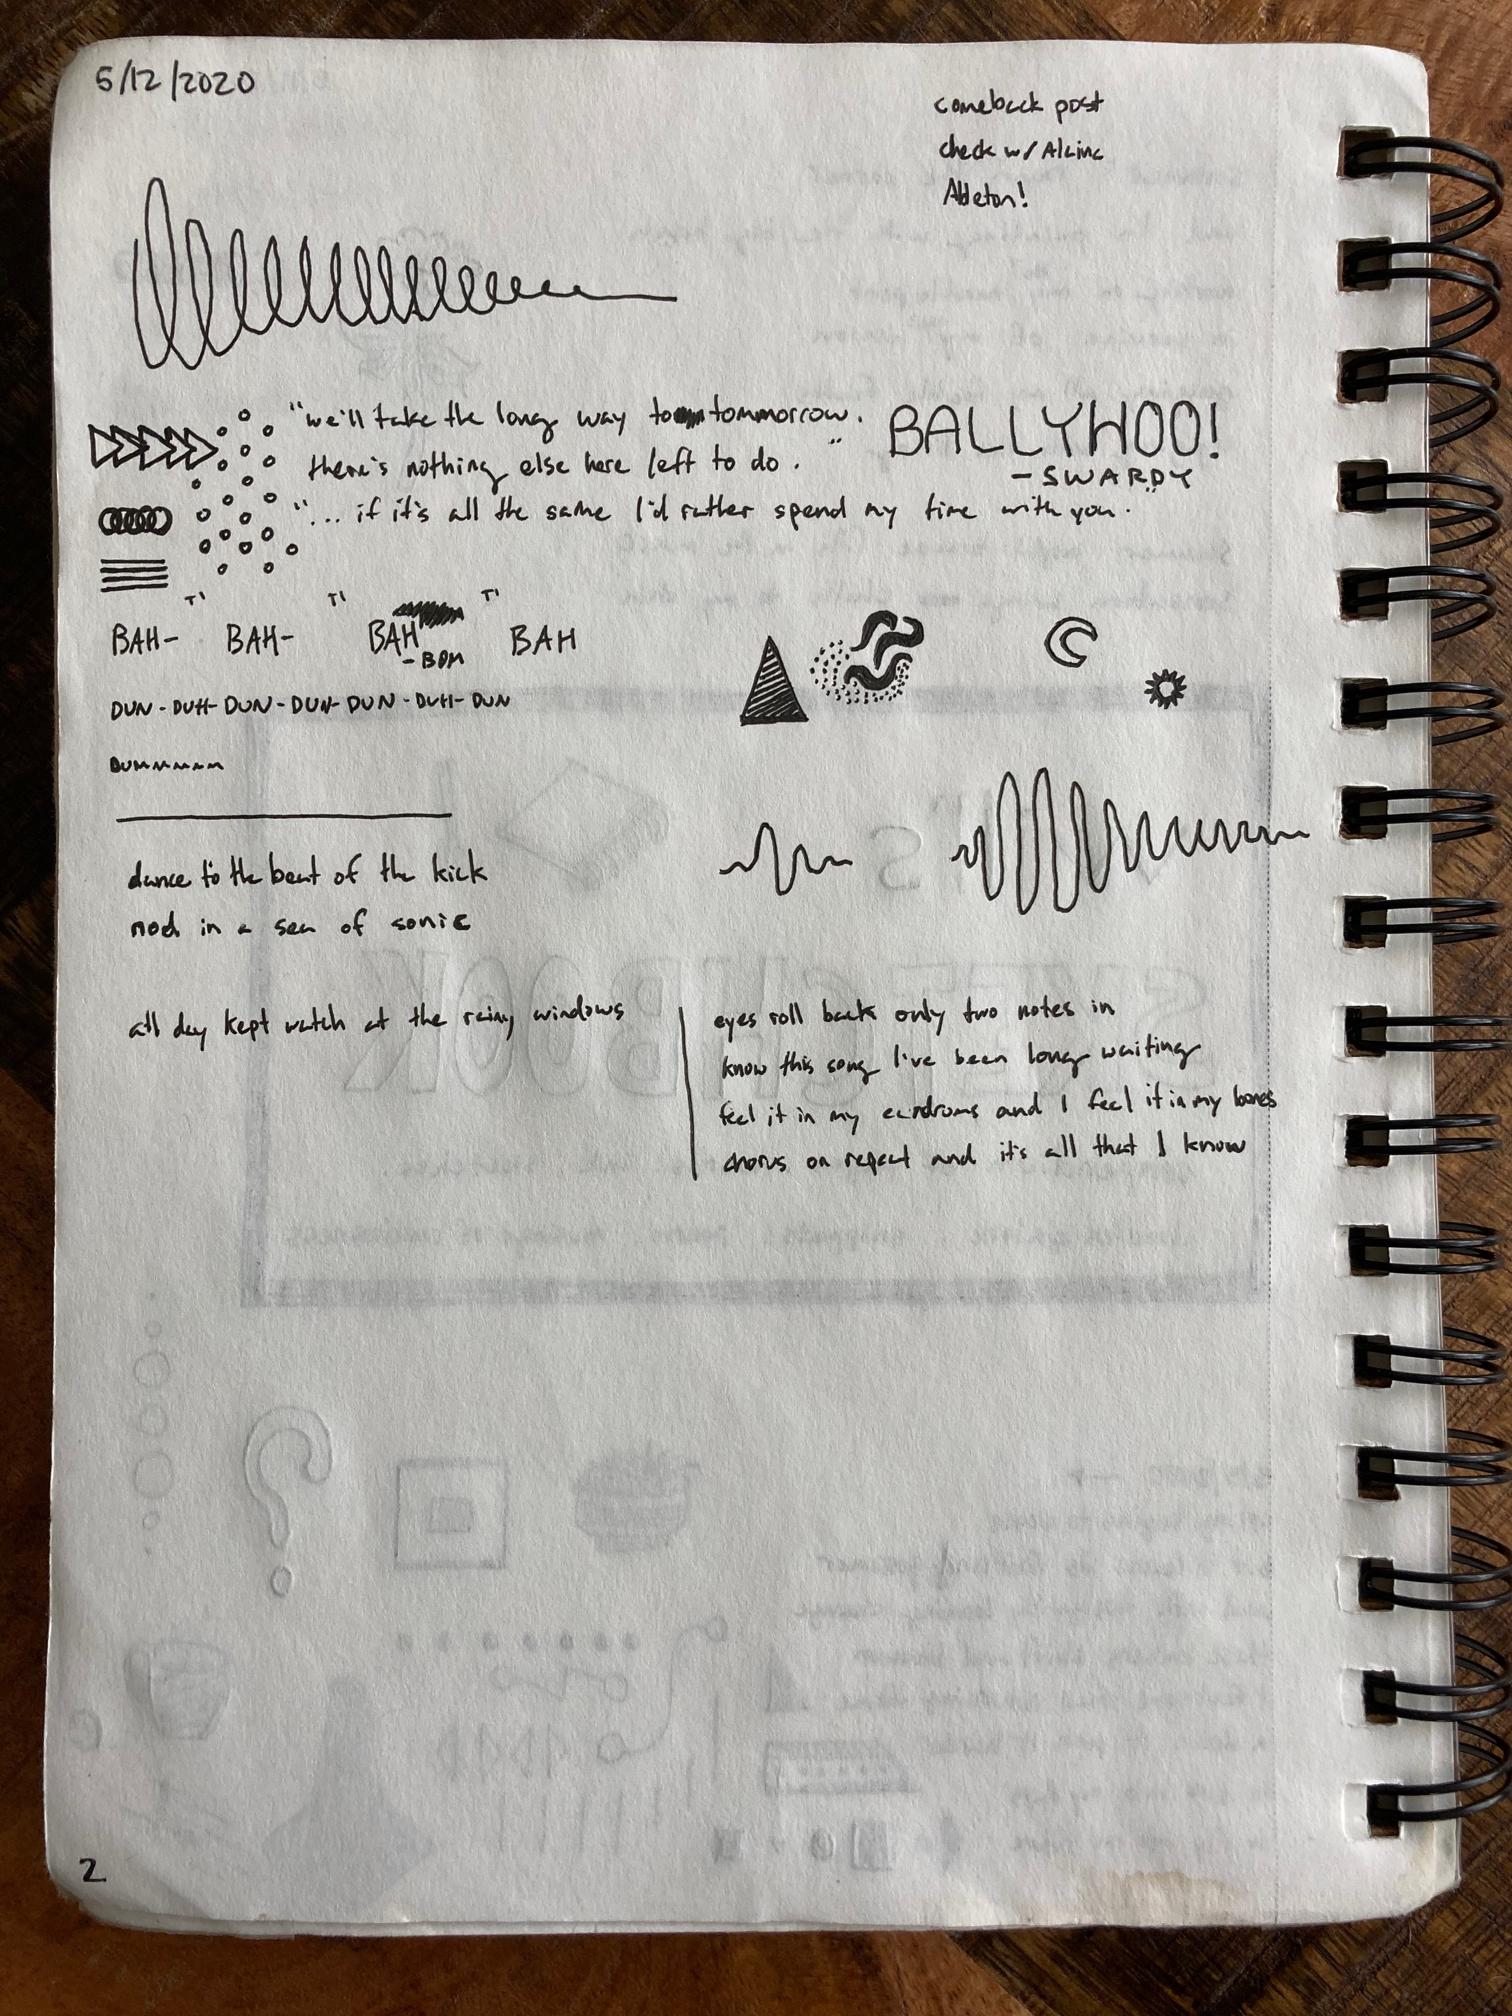 5/12/2020
comeback post
check w/ Alaina
Ableton!
"we'll take the long way to tommorrow.
there's nothing else here left to do. "
BALLYHOO!
- SWARDY
"... if it's all the same I'd rather spend my time with you."
TI TI TI
BAH- BAH- BAH BAH
- BOM
DUN - DUH - DUN - DUN - DUN - DUH - DUN
DUMMMMMM
dance to the beat of the kick
nod in a sea of sonic
all day kept watch at the rainy windows
eyes roll back only two notes in
know this song I've been long waiting
feel it in my eardrums and I feel it in my bones
chorus on repeat and it's all that I know
2